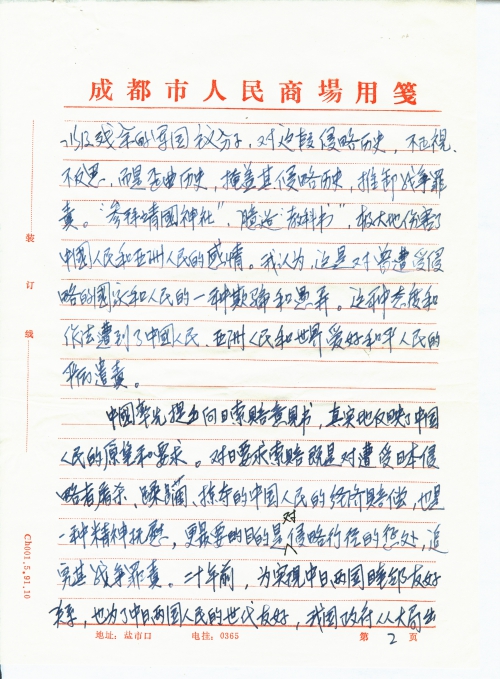 成都市人民商場用箋
以及残余的軍国主义分子，对这段侵略历史，不正視、
不反思，而是歪曲历史，掩盖其侵略历史，推卸战争罪
責。“参拜靖國神社”，臆造“教科书”，极大地伤害了
中國人民和亚洲人民的感情。我认为，这是对曾遭受侵
略的國家和人民的一种欺騙和愚弄。这种态度和
作法遭到了中國人民、亚洲人民和世界爱好和平人民的
遣責。
中國率先提出向日索賠意見书，真实地反映了中國
人民的原望和要求。对日要求索賠既是对遭受日本侵
略者屠杀、掠夺的中國人民的经济賠偿，也是
一种精神抚慰，更最要的目的是对侵略行径的惩处，追
究其战争罪責。二十年前，为实現中日两国睦邻友好
关系，也为了中日两国人民的世代友好，我国政府从大局出
装
订
线
Ch001.5.91.10
地址：盐市口 电挂：0365 第 2 页